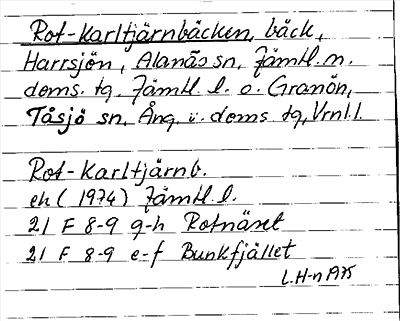 Rot-Karltjärnbäcken, bäck,
Harrsjön, Alanäs sn, Jämtl. n.
doms. tg, Jämtl. l. o. Granön,
Tåsjö sn, Ång. v. doms tg, Vrnl.l.
Rot-Karltjärnb.
ek (1974) Jämtl. l.
21 F 8-9 g-h Rotnäset
21 F 8-9 e-f Bunkfjället
L.H-n